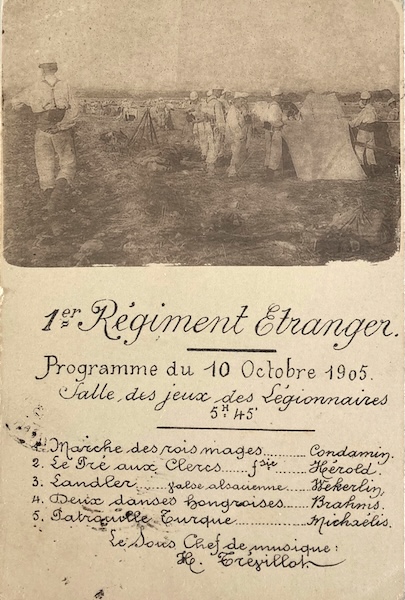 1er Régiment Etranger.
Programme du 10 Octobre 1905.
Salle des jeux des Légionnaires
5H 45'
1. Marche des rois mages...... Condamin.
2. Le Pré aux Clercs..... fsie....... Hérold.
3. Landler....valse alsacienne....Wekerlin,
4. Deux danses hongroises.....Brahms.
5. Patrouille Turque........Michaëlis.
Le Sous Chef de musique:
H. Trévillot